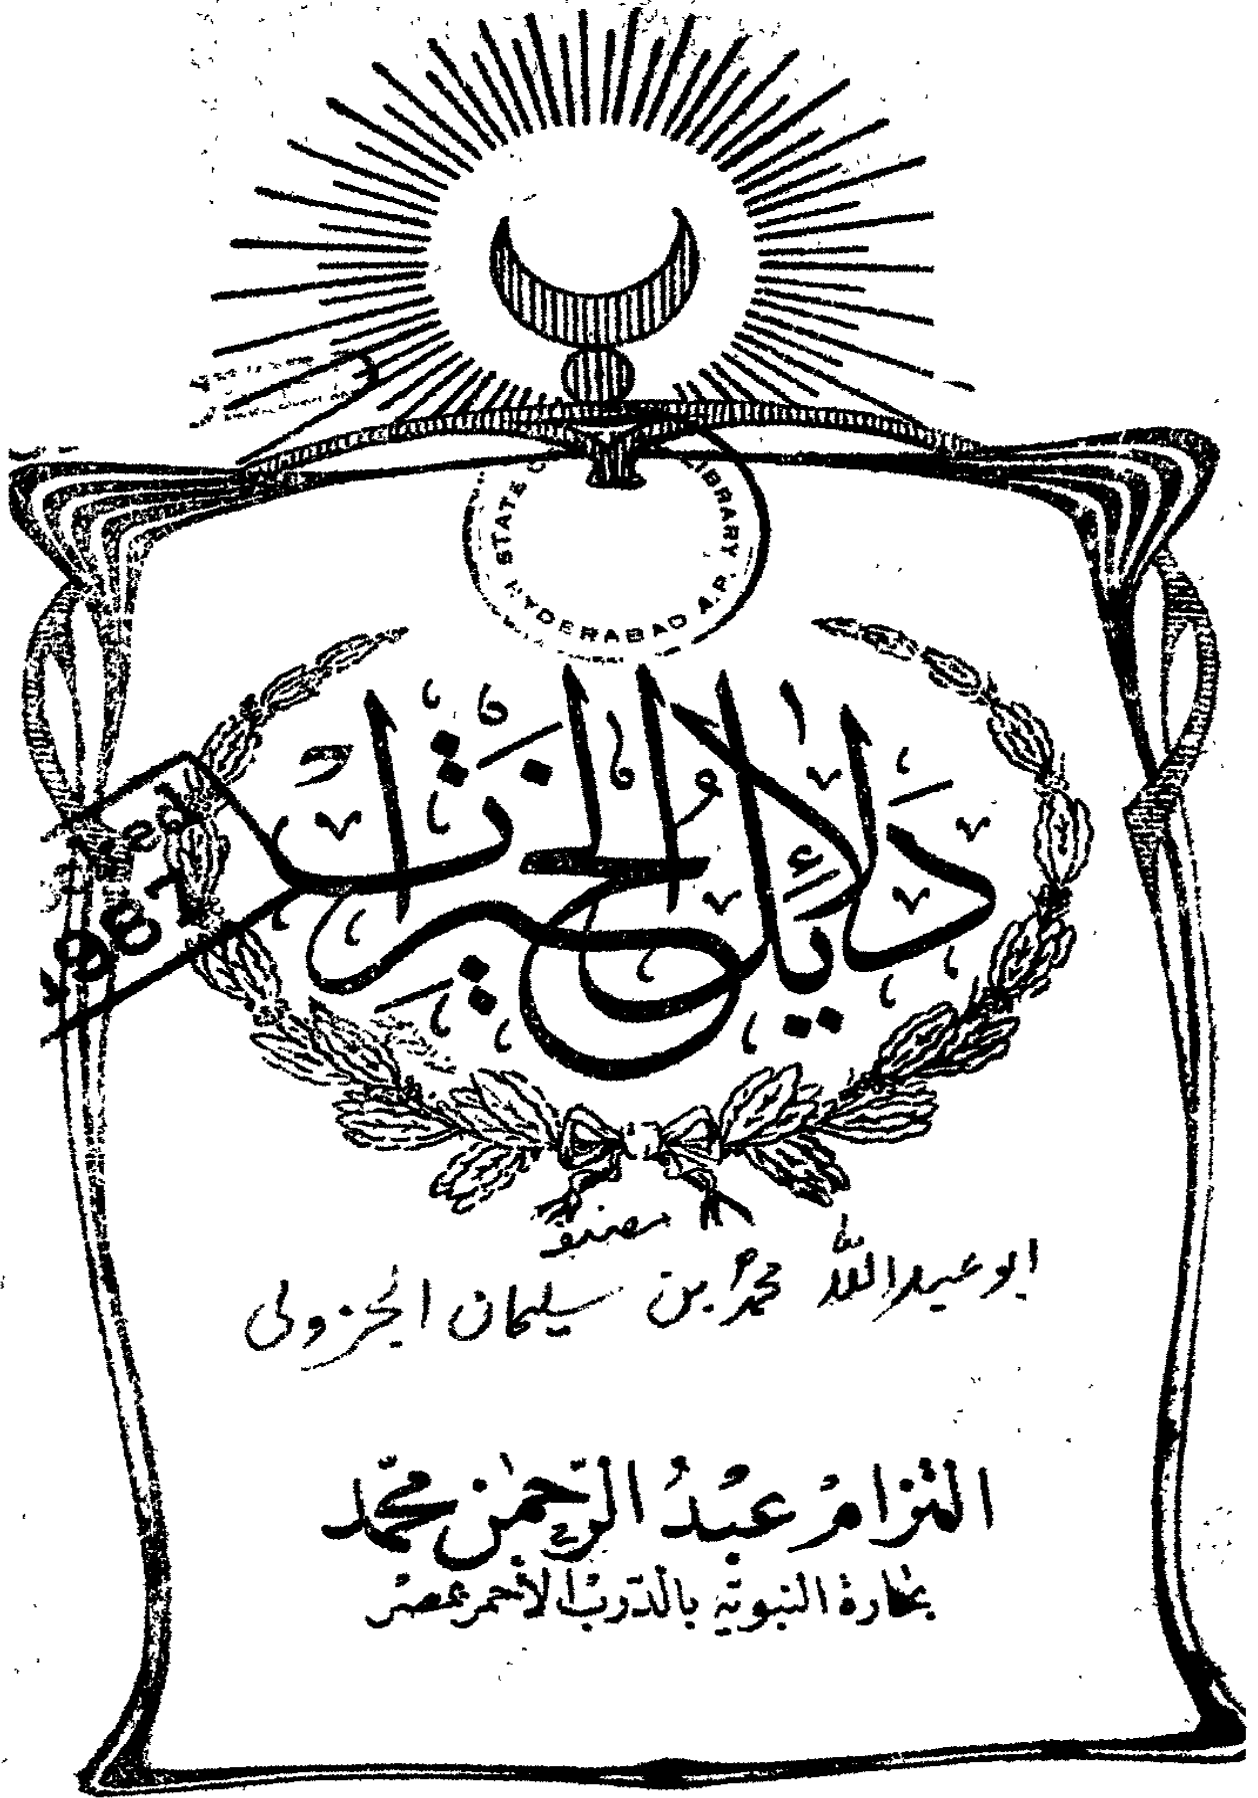 STATE LIBRARY
HYDERABAD A.P.
دَلَائِلُ الْخَيْرَاتِ
1987
مصنف
ابو عبد اللّٰه محمد بن سلیمان الجزولی
التزام عبد الرحمٰن محمد
بحارة النبوية بالدرب الأحمر بمصر